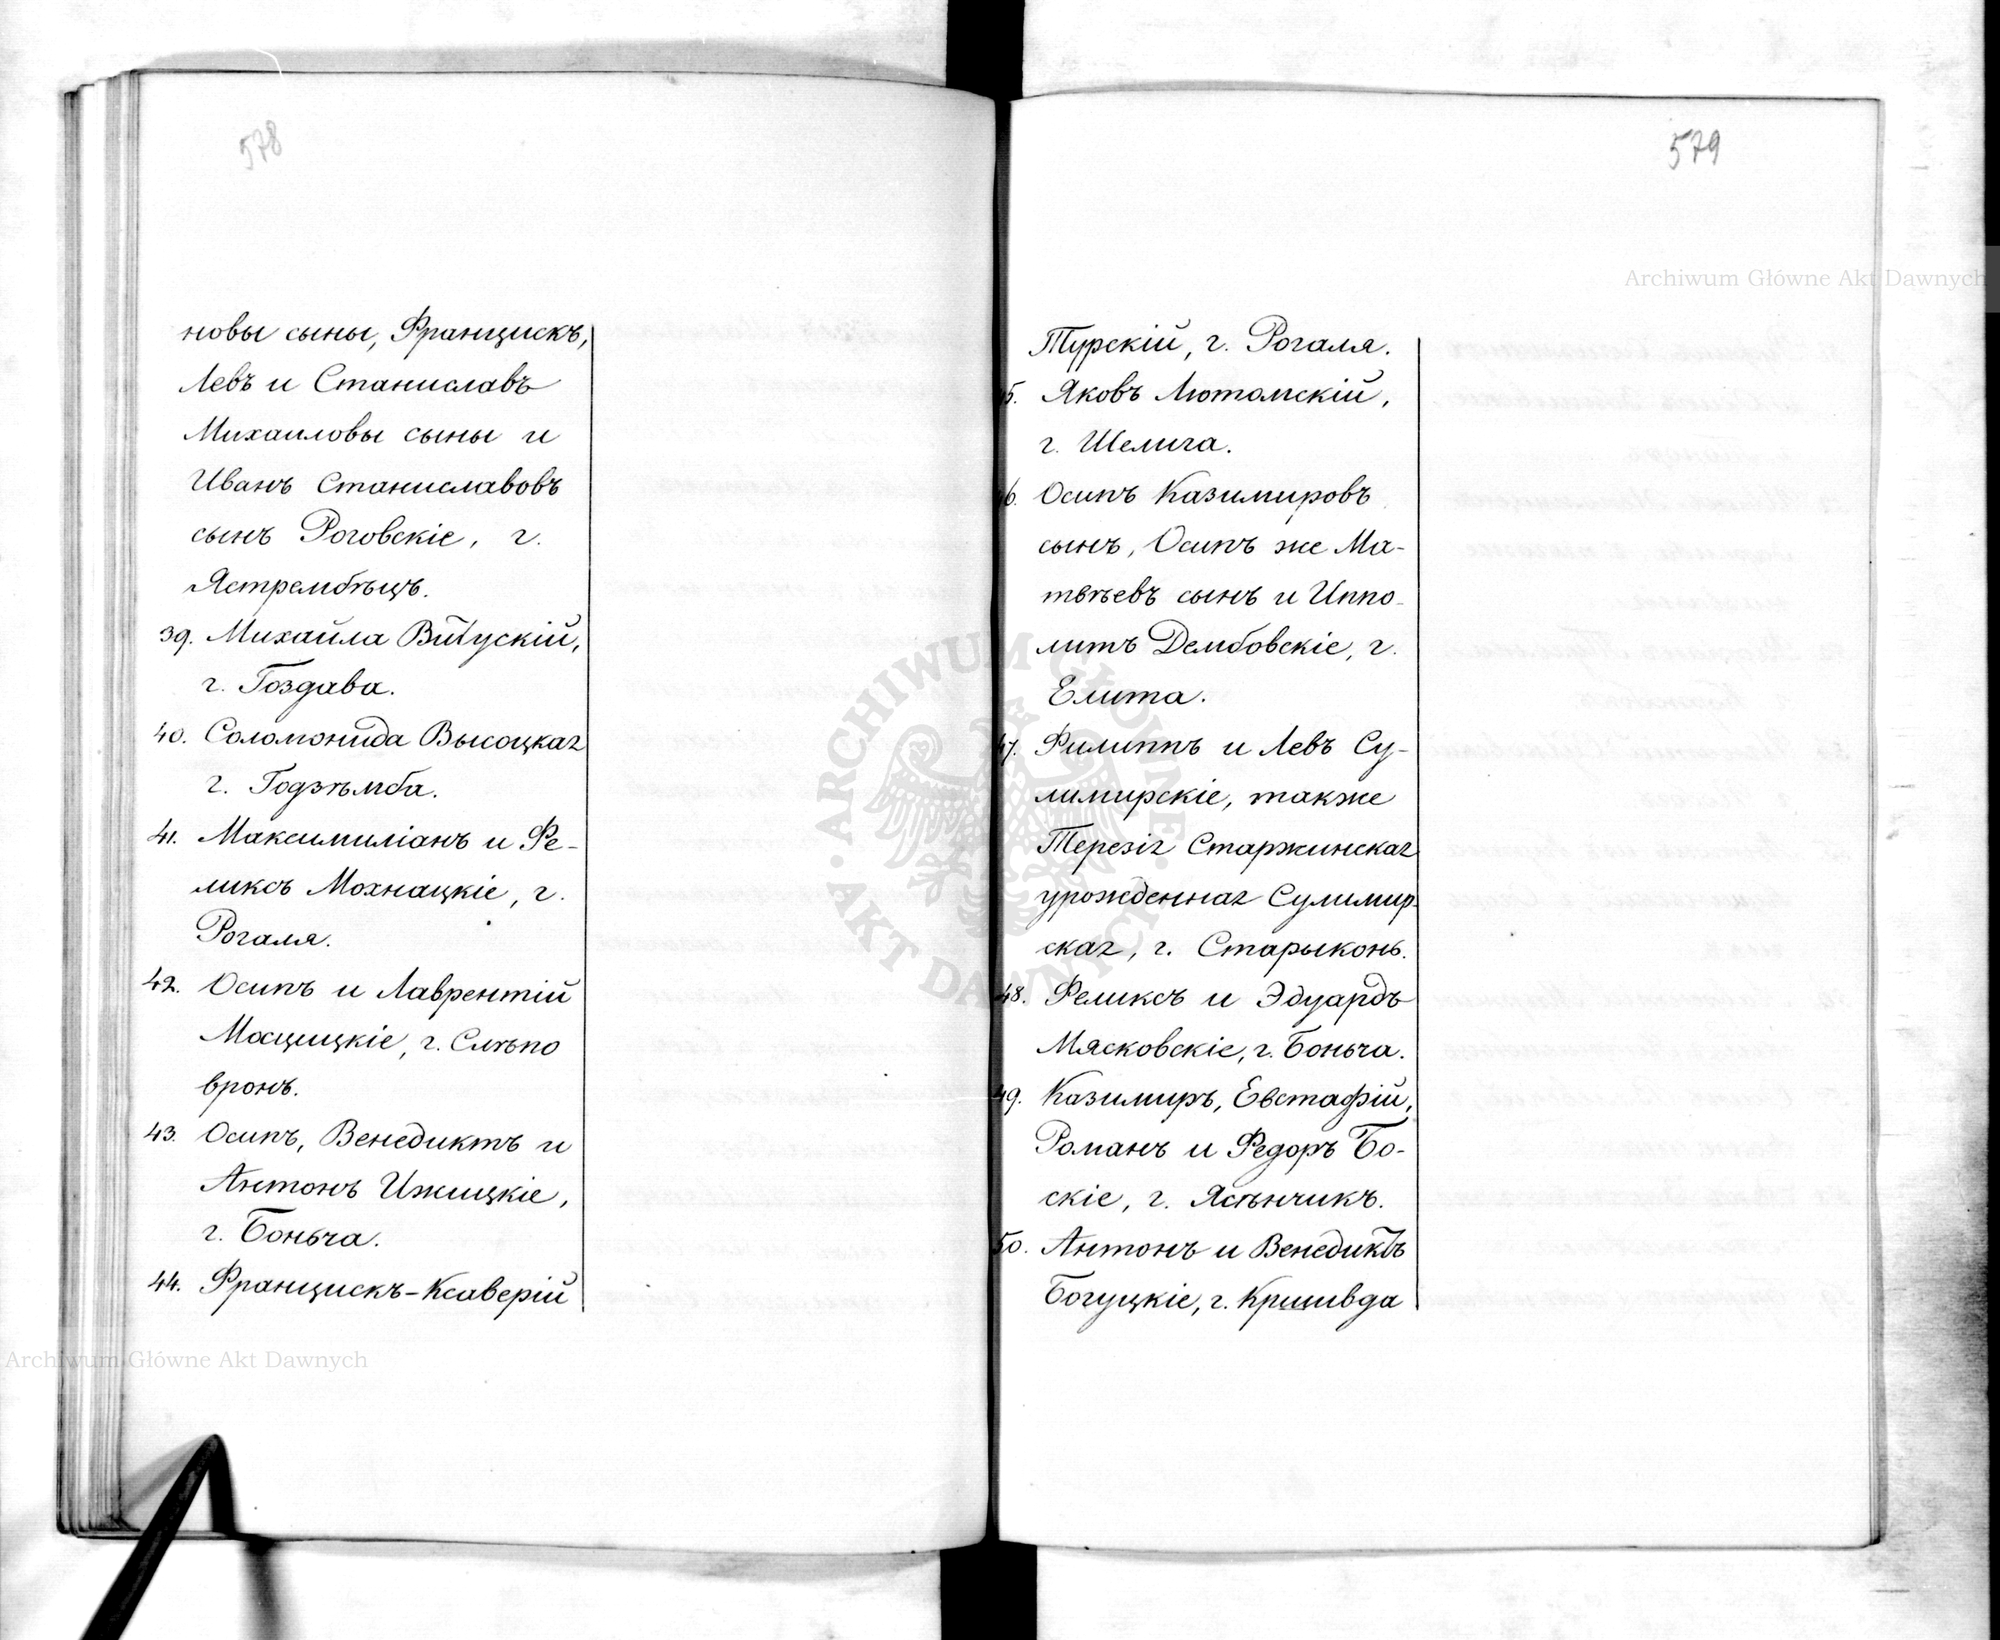 578
новы сыны, Францискъ,
Левъ и Станиславъ
Михаиловы сыны и
Иванъ Станиславовъ
сынъ Роговскіе, г.
Ястрембѣцъ.
39. Михайла Витускій,
г. Гоздава.
40. Соломонида Высоцкая
г. Годзѣмба.
41. Максимиліанъ и Фе-
ликсъ Мохнацкіе, г.
Рогаля.
42. Осипъ и Лаврентій
Мосцицкіе, г. Слѣпо
вронъ.
43. Осипъ, Венедиктъ и
Антонъ Ижицкіе,
г. Боньча.
44. Францискъ-Ксаверій
579
Турскій, г. Рогаля.
45. Яковъ Лютомскій,
г. Шелига.
46. Осипъ Казимировъ
сынъ, Осипъ же Ма-
твѣевъ сынъ и Иппо-
литъ Дембовскіе, г.
Елита.
47. Филиппъ и Левъ Су-
лимирскіе, также
Терезія Старжинская
урожденная Сулимир-
ская, г. Старыконь.
48. Феликсъ и Эдуардъ
Мясковскіе, г. Боньча.
49. Казимиръ, Евстафій,
Романъ и Федоръ Бо-
скіе, г. Ясѣнчикъ.
50. Антонъ и Венедиктъ
Богуцкіе, г. Кршивда
Archiwum Główne Akt Dawnych
Archiwum Główne Akt Dawnych
ARCHIWUM GŁÓWNE AKT DAWNYCH